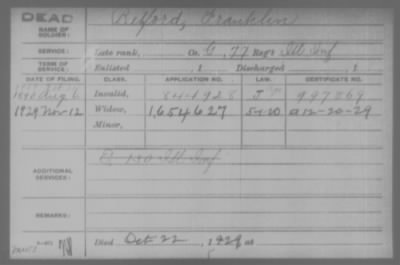 DEAD
NAME OF SOLDIER: Relford, Franklin
SERVICE: Late rank, Co. G, 77 Reg't Ill Inf
TERM OF SERVICE: Enlisted , 1 Discharged , 1
DATE OF FILING. CLASS. APPLICATION NO. LAW. CERTIFICATE NO.
1890 Aug 6 Invalid, 841928 J 997869
1929 Nov-12 Widow, 1,654627 5-1-20 a 12-20-29
Minor,
ADDITIONAL SERVICES: Ill Inf
REMARKS:
Died Oct 22, 1929, at